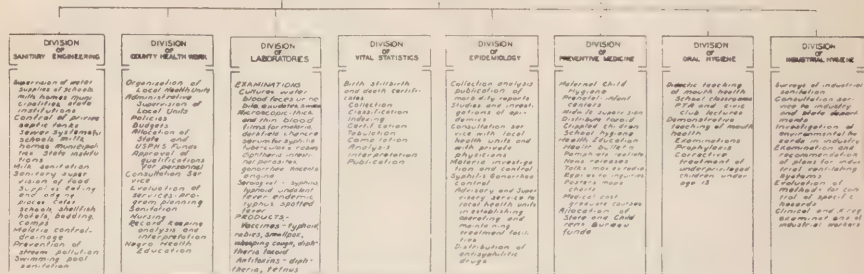 DIVISION
OF
SANITARY ENGINEERING
Supervision of water
supplies of schools
mill homes munic-
ipalities state
institutions
Control of private
septic tanks
Sewer systems for
schools mills
homes municipali-
ties State institu-
tions
Milk sanitation
Sanitary super
vision of food
Supplies eating
and lodging
places cafes
schools, shellfish
hotels, bedding,
camps
Malaria control-
drainage
Prevention of
stream pollution
Swimming pool
sanitation
DIVISION
OF
COUNTY HEALTH WORK
Organization of
Local Health Units
Administrative
Supervision of
Local Units
Policies
Budgets
Allocation of
State and
USPHS Funds
Approval of
qualifications
for personnel
Consultation Ser
vice
Evaluation of
Services: pro-
gram planning
Sanitation
Nursing
Record Keeping
analysis and
interpretation
Negro Health
Education
DIVISION
OF
LABORATORIES
EXAMINATIONS
Cultures water
blood feces urine
Microscopic-thick
and thin blood
films for malaria,
serum for syphilis
tuberculosis
diphtheria intesti-
nal parasites
gonorrhea
Serological - syphilis
typhoid undulant
fever endemic
typhus spotted
fever
PRODUCTS-
Vaccines - typhoid,
rabies, smallpox,
whooping cough, diph-
theria toxoid
Antitoxins - diph-
theria, tetnus
DIVISION
OF
VITAL STATISTICS
Birth stillbirth
and death certifi-
cates
Collection
Classification
Indexing
Certification
Tabulation
Correlation
Analysis
Interpretation
Publication
DIVISION
OF
EPIDEMIOLOGY
Collection analysis
publication of
morbidity reports
Studies and invest-
igations of epi-
demics
Consultation Ser
vice with local
health units and
with private
physicians
Malaria investiga
tion and control
Syphilis Gonorrhea
Control
Advisory and Super
visory service to
local health units
in establishing
operating and
maintaining
treatment facil-
ities
Distribution of
antisyphilitic
drugs
DIVISION
OF
PREVENTIVE MEDICINE
Maternal Child
Hygiene
Prenatal-infant
centers
Midwife supervision
Distribute toxoid
Crippled children
School hygiene
Health Education
Health bulletin
Pamphlets
News releases
Talks movies radio
Replies to inquiries
Posters maps
charts
Medical post
graduate courses
Allocation of
State and Child
rens Bureau
funds
DIVISION
OF
ORAL HYGIENE
Didactic teaching
of mouth health
School classrooms
PTA and civic
club lectures
Demonstrative
teaching of mouth
health
Examinations
Prophylaxis
Corrective
treatment of
underprivileged
children under
age 13
DIVISION
OF
INDUSTRIAL HYGIENE
Surveys of industrial
sanitation
Consultation ser
vice to industry
and state depart
ments
Investigation of
environmental ha
zards in industry
Examination and
recommendation
of plans for indus
trial ventilating
Systems
Evaluation of
methods for con
trol of specific
hazards
Clinical and X-ray
examinations of
industrial workers